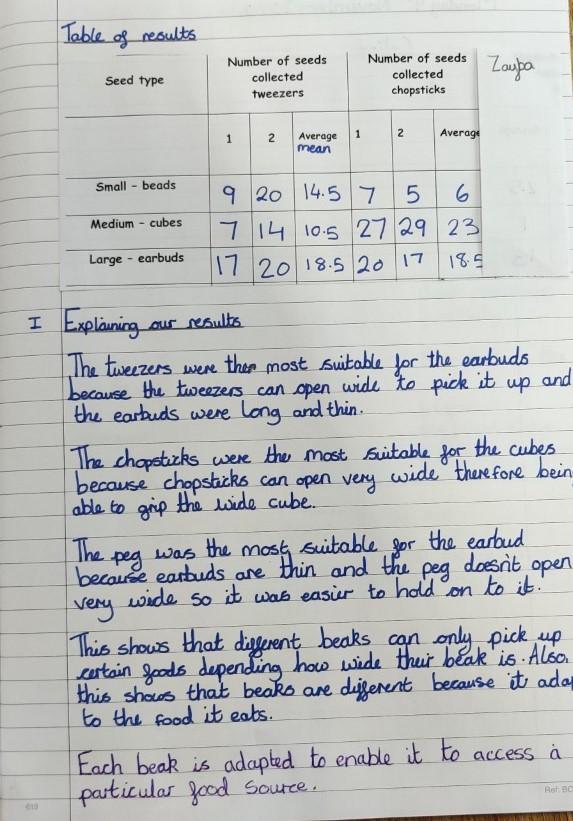 Table of results
Seed type
Number of seeds collected tweezers
Number of seeds collected chopsticks
Zaupa
1 2 Average mean 1 2 Average
Small - beads 9 20 14.5 7 5 6
Medium - cubes 7 14 10.5 27 29 23
Large - earbuds 17 20 18.5 20 17 18.5
I Explaining our results
The tweezers were the most suitable for the earbuds
because the tweezers can open wide to pick it up and
the earbuds were long and thin.
The chopsticks were the most suitable for the cubes
because chopsticks can open very wide therefore bein
able to grip the wide cube.
The peg was the most suitable for the earbud
because earbuds are thin and the peg doesn't open
very wide so it was easier to hold on to it.
This shows that different beaks can only pick up
certain foods depending how wide their beak is. Also,
this shows that beaks are different because it ada
to the food it eats.
Each beak is adapted to enable it to access a
particular food source.
619
Ref: BC